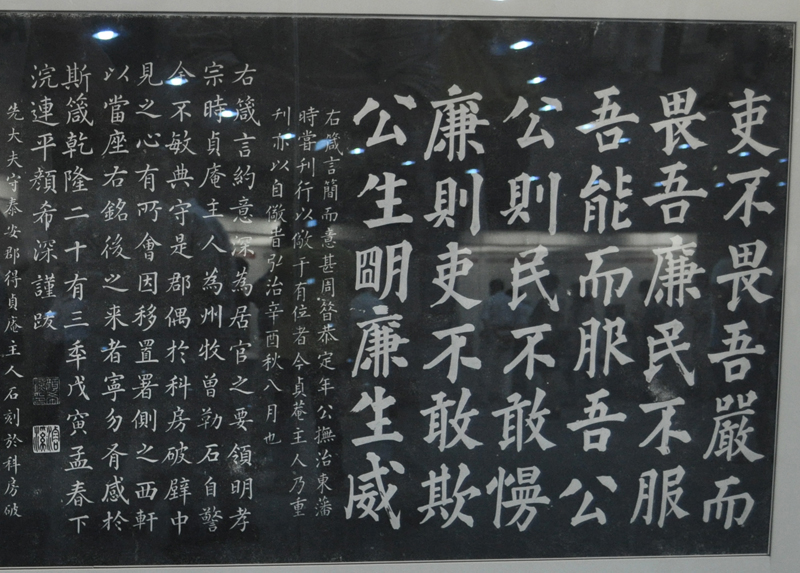 吏不畏吾嚴而
畏吾廉民不服
吾能而服吾公
公則民不敢慢
廉則吏不敢欺
公生朙廉生威
右箴言簡而意甚周昝恭定年公撫治東藩
時嘗刊行以儆于有位者今貞菴主人乃重
刊亦以自儆昔弘治辛酉秋八月也
右箴言約意深為居官之要領明孝
宗時貞庵主人為州牧曾勒石自警
余不敏典守是郡偶於科房破壁中
見之心有所會因移置署側之西軒
以當座右銘後之来者寧勿有感於
斯箴乾隆二十有三年戊寅孟春下
浣連平顏希深謹跋
先大夫守泰安郡得貞庵主人石刻於科房破